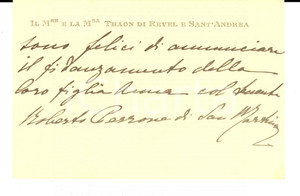 IL Mse E LA Msa THAON DI REVEL E SANT'ANDREA
sono felici di annunciare
il fidanzamento della
loro figlia Anna col
Roberto Perrone di San Martino